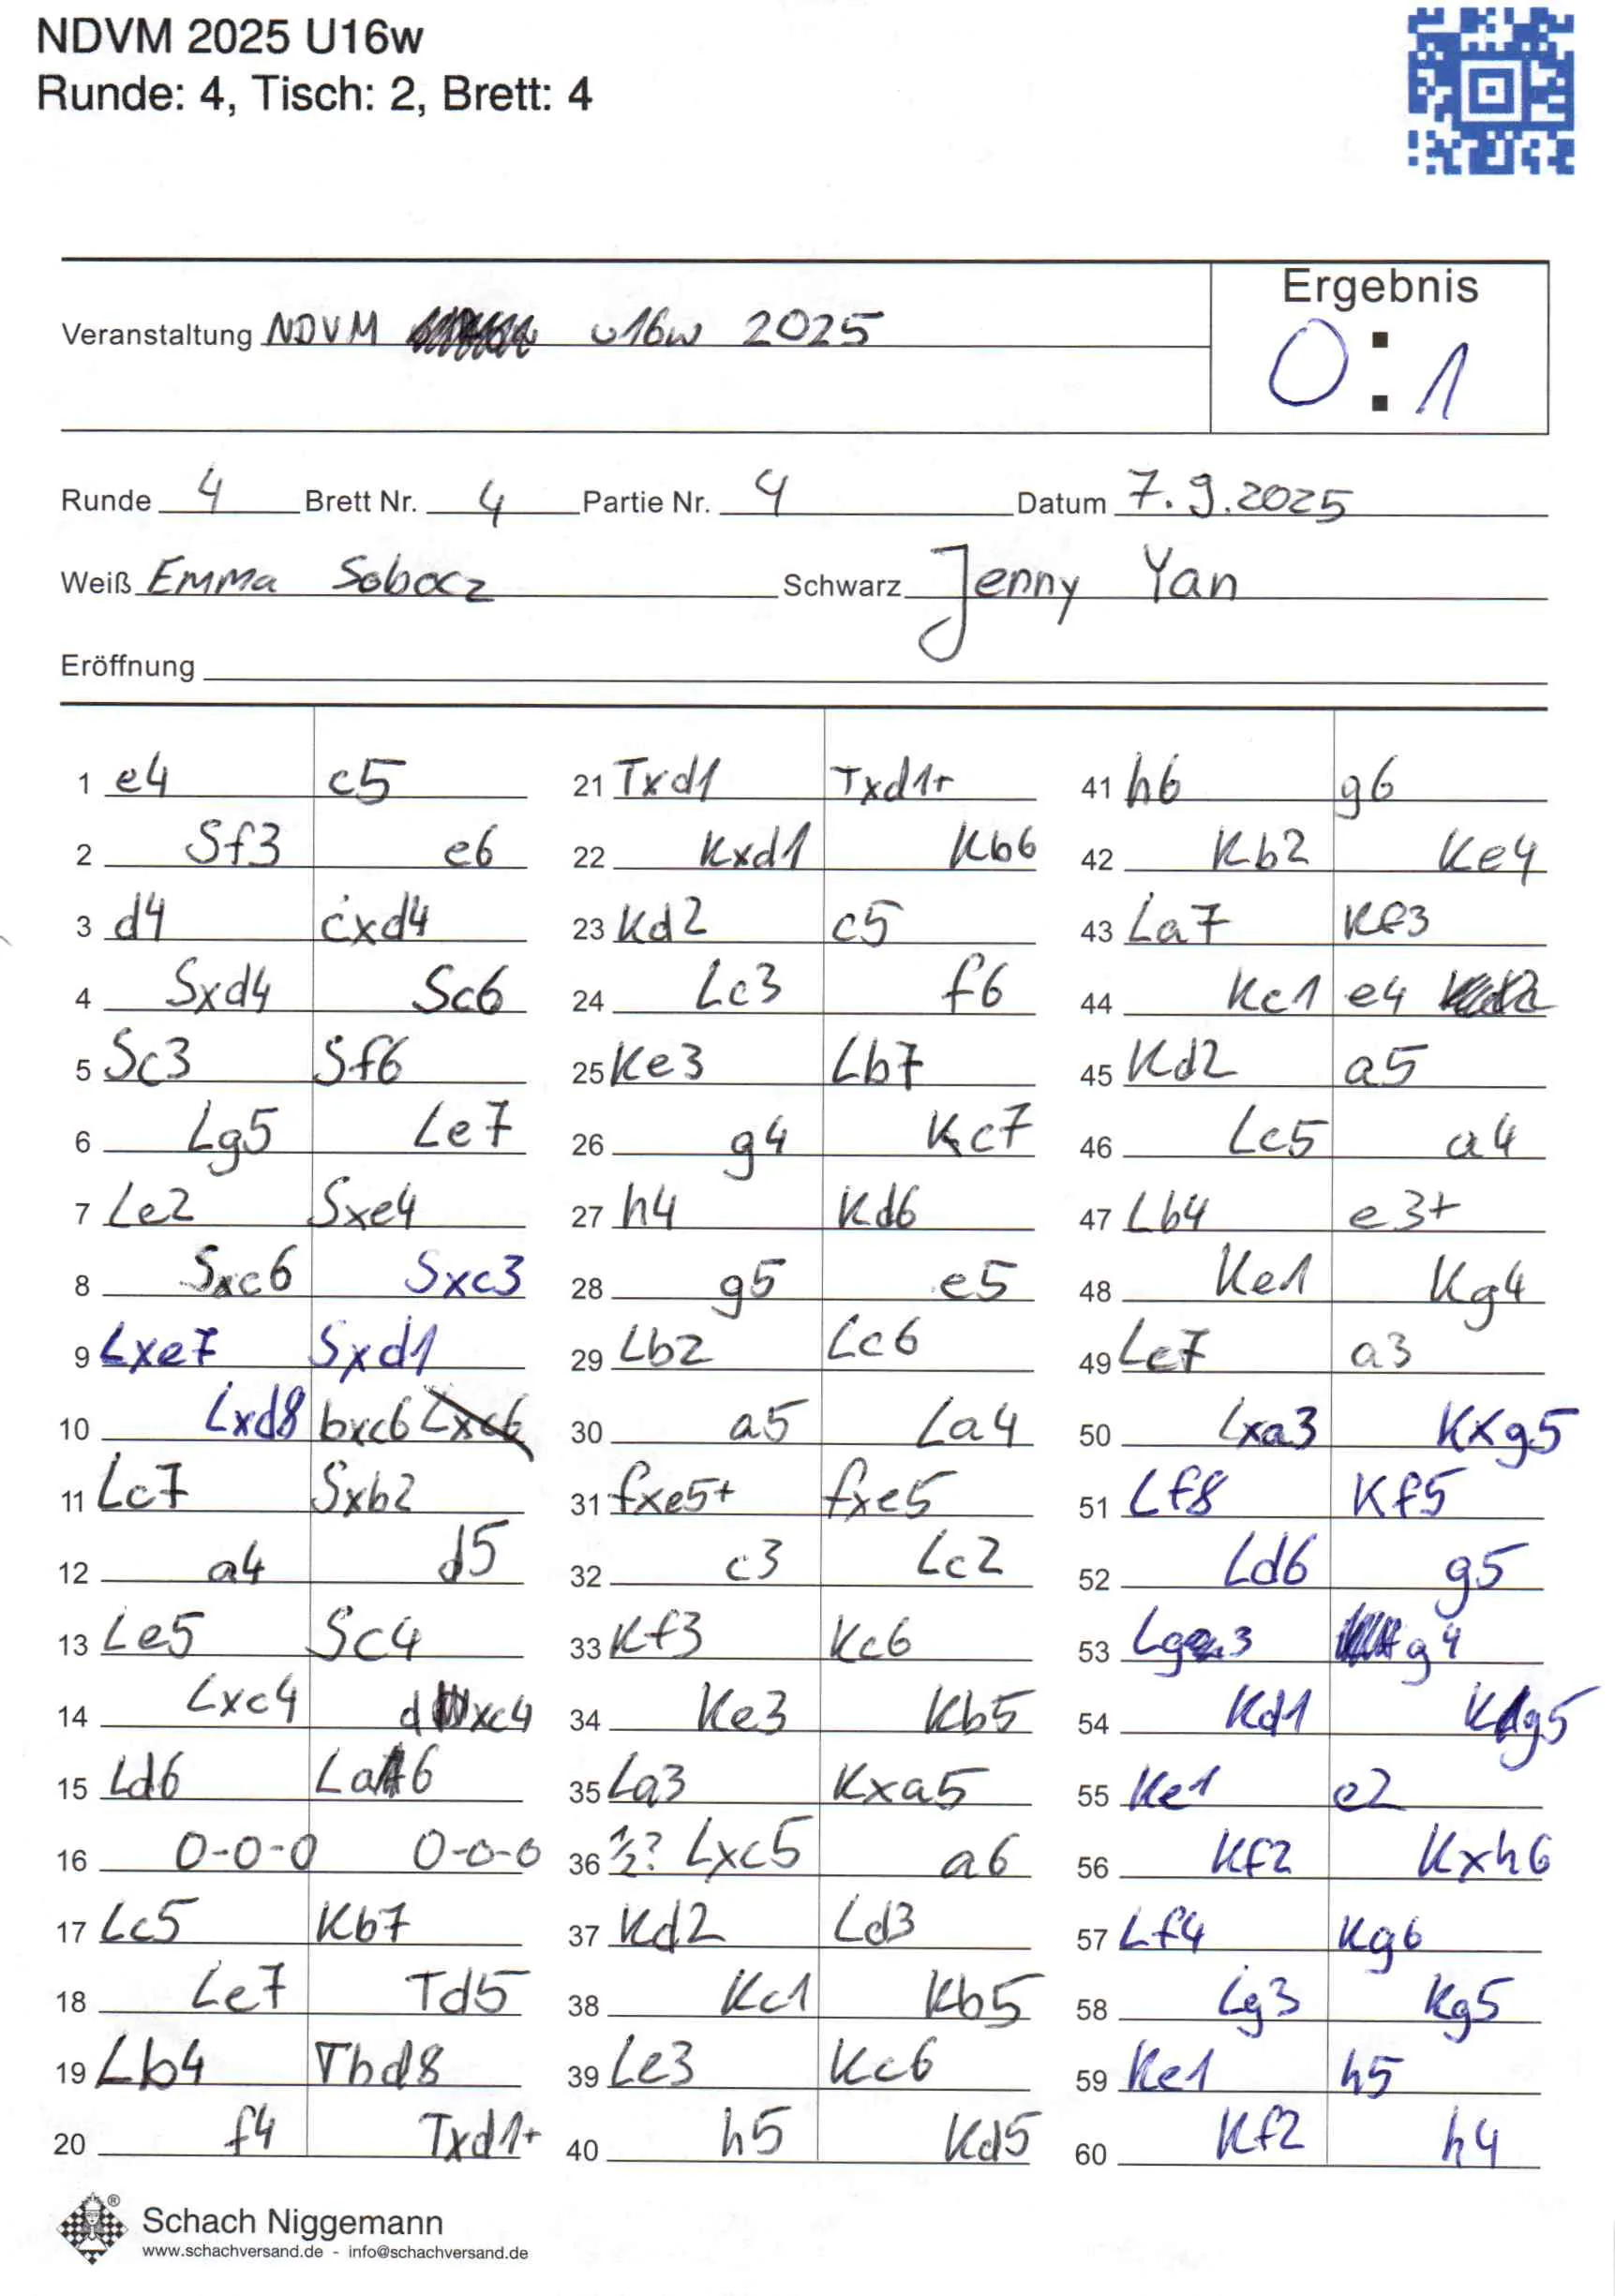 NDVM 2025 U16w
Runde: 4, Tisch: 2, Brett: 4
Ergebnis
Veranstaltung NDVM u16w 2025
0 : 1
Runde 4 Brett Nr. 4 Partie Nr. 4 Datum 7.9.2025
Weiß Emma Sobocz Schwarz Jenny Yan
Eröffnung
1 e4 c5
2 Sf3 e6
3 d4 cxd4
4 Sxd4 Sc6
5 Sc3 Sf6
6 Lg5 Le7
7 Le2 Sxe4
8 Sxc6 Sxc3
9 Lxe7 Sxd1
10 Lxd8 bxc6 Lxc6
11 Lc7 Sxb2
12 a4 d5
13 Le5 Sc4
14 Lxc4 dxc4
15 Ld6 La6
16 0-0-0 0-0-0
17 Lc5 Kb7
18 Le7 Td5
19 Lb4 Thd8
20 f4 Txd1+
21 Txd1 Txd1+
22 Kxd1 Kb6
23 Kd2 c5
24 Lc3 f6
25 Ke3 Lb7
26 g4 Kc7
27 h4 Kd6
28 g5 e5
29 Lb2 Lc6
30 a5 La4
31 fxe5+ fxe5
32 c3 Lc2
33 Kf3 Kc6
34 Ke3 Kb5
35 La3 Kxa5
36 ½? Lxc5 a6
37 Kd2 Ld3
38 Kc1 Kb5
39 Le3 Kc6
40 h5 Kd5
41 h6 g6
42 Kb2 Ke4
43 La7 Kf3
44 Kc1 e4
45 Kd2 a5
46 Lc5 a4
47 Lb4 e3+
48 Ke1 Kg4
49 Le7 a3
50 Lxa3 Kxg5
51 Lf8 Kf5
52 Ld6 g5
53 Lg3 g4
54 Kd1 Kg5
55 Ke1 e2
56 Kf2 Kxh6
57 Lf4 Kg6
58 Lg3 Kg5
59 Ke1 h5
60 Kf2 h4
®
Schach Niggemann
www.schachversand.de - info@schachversand.de